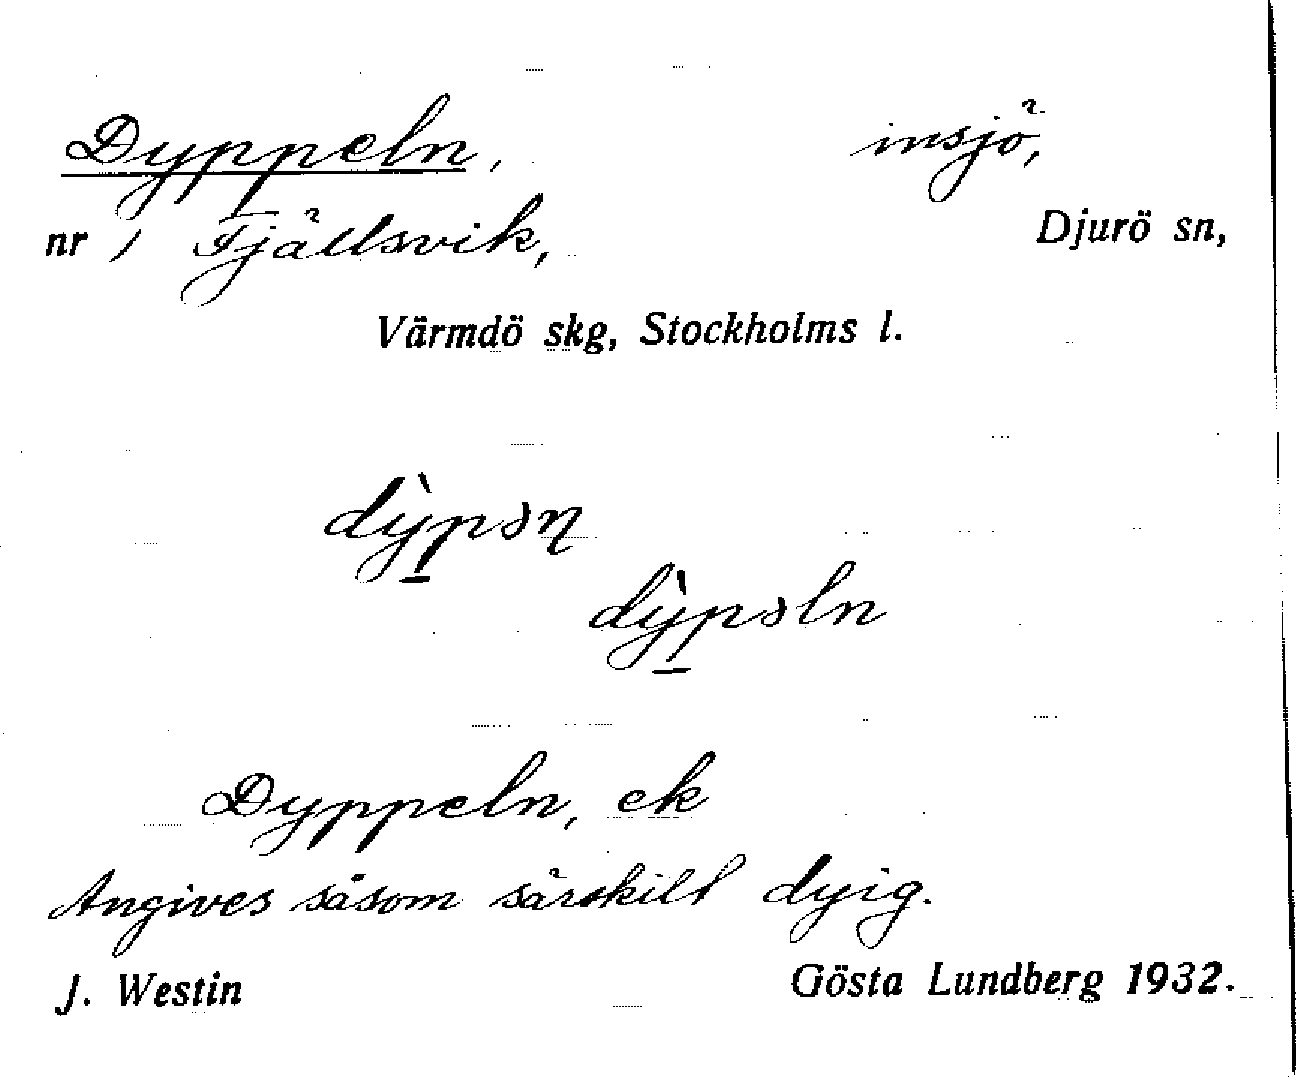 Dyppeln, insjö,
nr 1 Fjällsvik, Djurö sn,
Värmdö skg, Stockholms l.
dỳp̲əη
dỳp̲əln
Dyppeln, ek
Angives såsom särskilt dyig.
J. Westin Gösta Lundberg 1932.